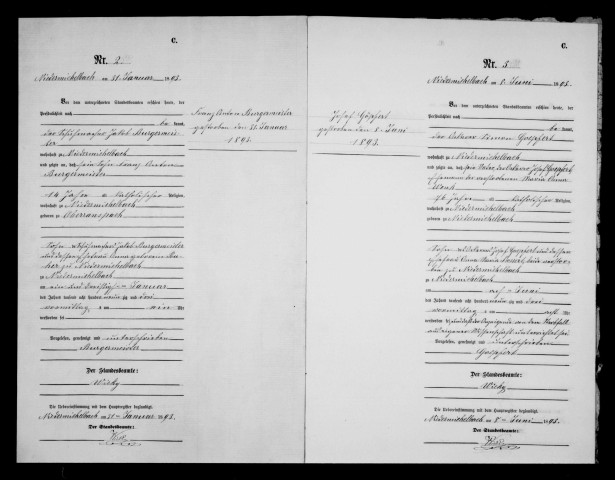 C.
Nr. 2
Niedermichelbach am 31. Januar 1893.
Vor dem unterzeichneten Standesbeamten erschien heute, der
Persönlichkeit nach
be kannt,
der Jakob Burgermei-
ster
wohnhaft zu Niedermichelbach
und zeigte an, daß sein Sohn Franz Anton
Burgermeister
14 Jahre alt, katholischer Religion,
wohnhaft zu Niedermichelbach
geboren zu Oberranspach
Sohn des Jakob Burgermeister
und dessen Ehefrau Anna geborene
zu Niedermichelbach
zu Niedermichelbach
am ein und dreißigsten Januar
des Jahres tausend acht hundert neunzig und drei
vormittags um ein Uhr
verstorben sei
Vorgelesen, genehmigt und unterschrieben
Burgermeister
Der Standesbeamte:
Die Uebereinstimmung mit dem Hauptregister beglaubigt.
Niedermichelbach am 31. Januar 1893.
Der Standesbeamte:
Franz Anton Burgermeister
gestorben den 31. Januar
1893.
Josef Goepfert
gestorben den 8. Juni
1893.
C.
Nr. 5
Niedermichelbach am 8. Juni 1893.
Vor dem unterzeichneten Standesbeamten erschien heute, der
Persönlichkeit nach
be kannt,
der Ackerer Simon Goepfert
wohnhaft zu Niedermichelbach
und zeigte an, daß sein Vater der Ackerer Josef Goepfert
Ehemann der verstorbenen Maria Anna
76 Jahre alt, katholischer Religion,
wohnhaft zu Niedermichelbach
geboren zu Niedermichelbach
Sohn des Josef Goepfert und dessen
Ehefrau Anna Maria
zu Niedermichelbach
zu Niedermichelbach
am acht Juni
des Jahres tausend acht hundert neunzig und drei
vormittags um Uhr
verstorben sei
aus eigener Wissenschaft unterrichtet sei
Vorgelesen, genehmigt und unterschrieben
Goepfert
Der Standesbeamte:
Die Uebereinstimmung mit dem Hauptregister beglaubigt.
Niedermichelbach am 8. Juni 1893.
Der Standesbeamte: